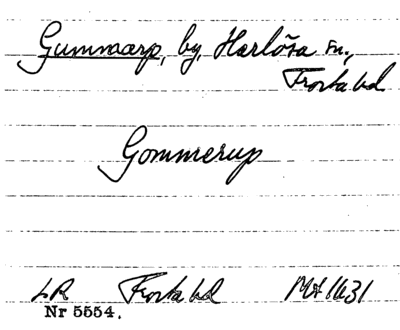 Gummarp, by, Harlösa sn.,
Frosta hd
Gommerup
LR Frosta hd Mt 1631
Nr 5554.